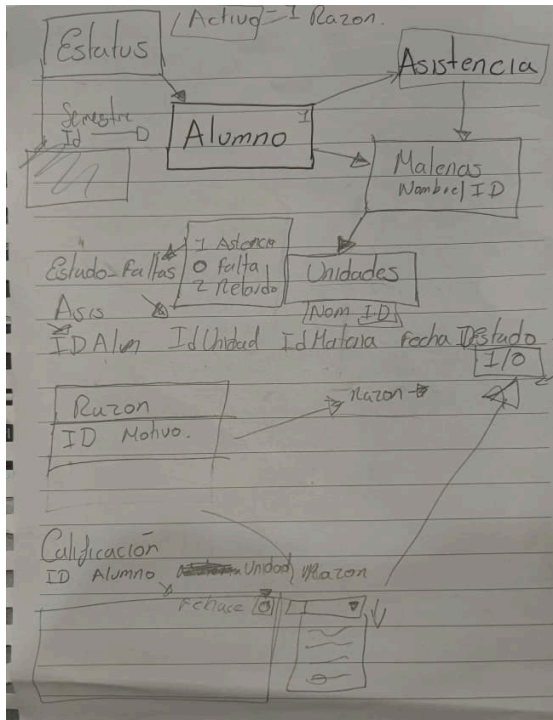 Activo = 1 Razon.
Estatus
Asistencia
Semestre
Id
1
Alumno
Materias
Nombre/ID
1 Astencia
0 falta
2 Retardo
Estado-Faltas
Unidades
Nom ID
Asis
ID Alum Id Unidad Id Materia Fecha IDestado
1/0
Razon
ID Motivo.
Razon
Calificación
ID Alumno Unidad Razon